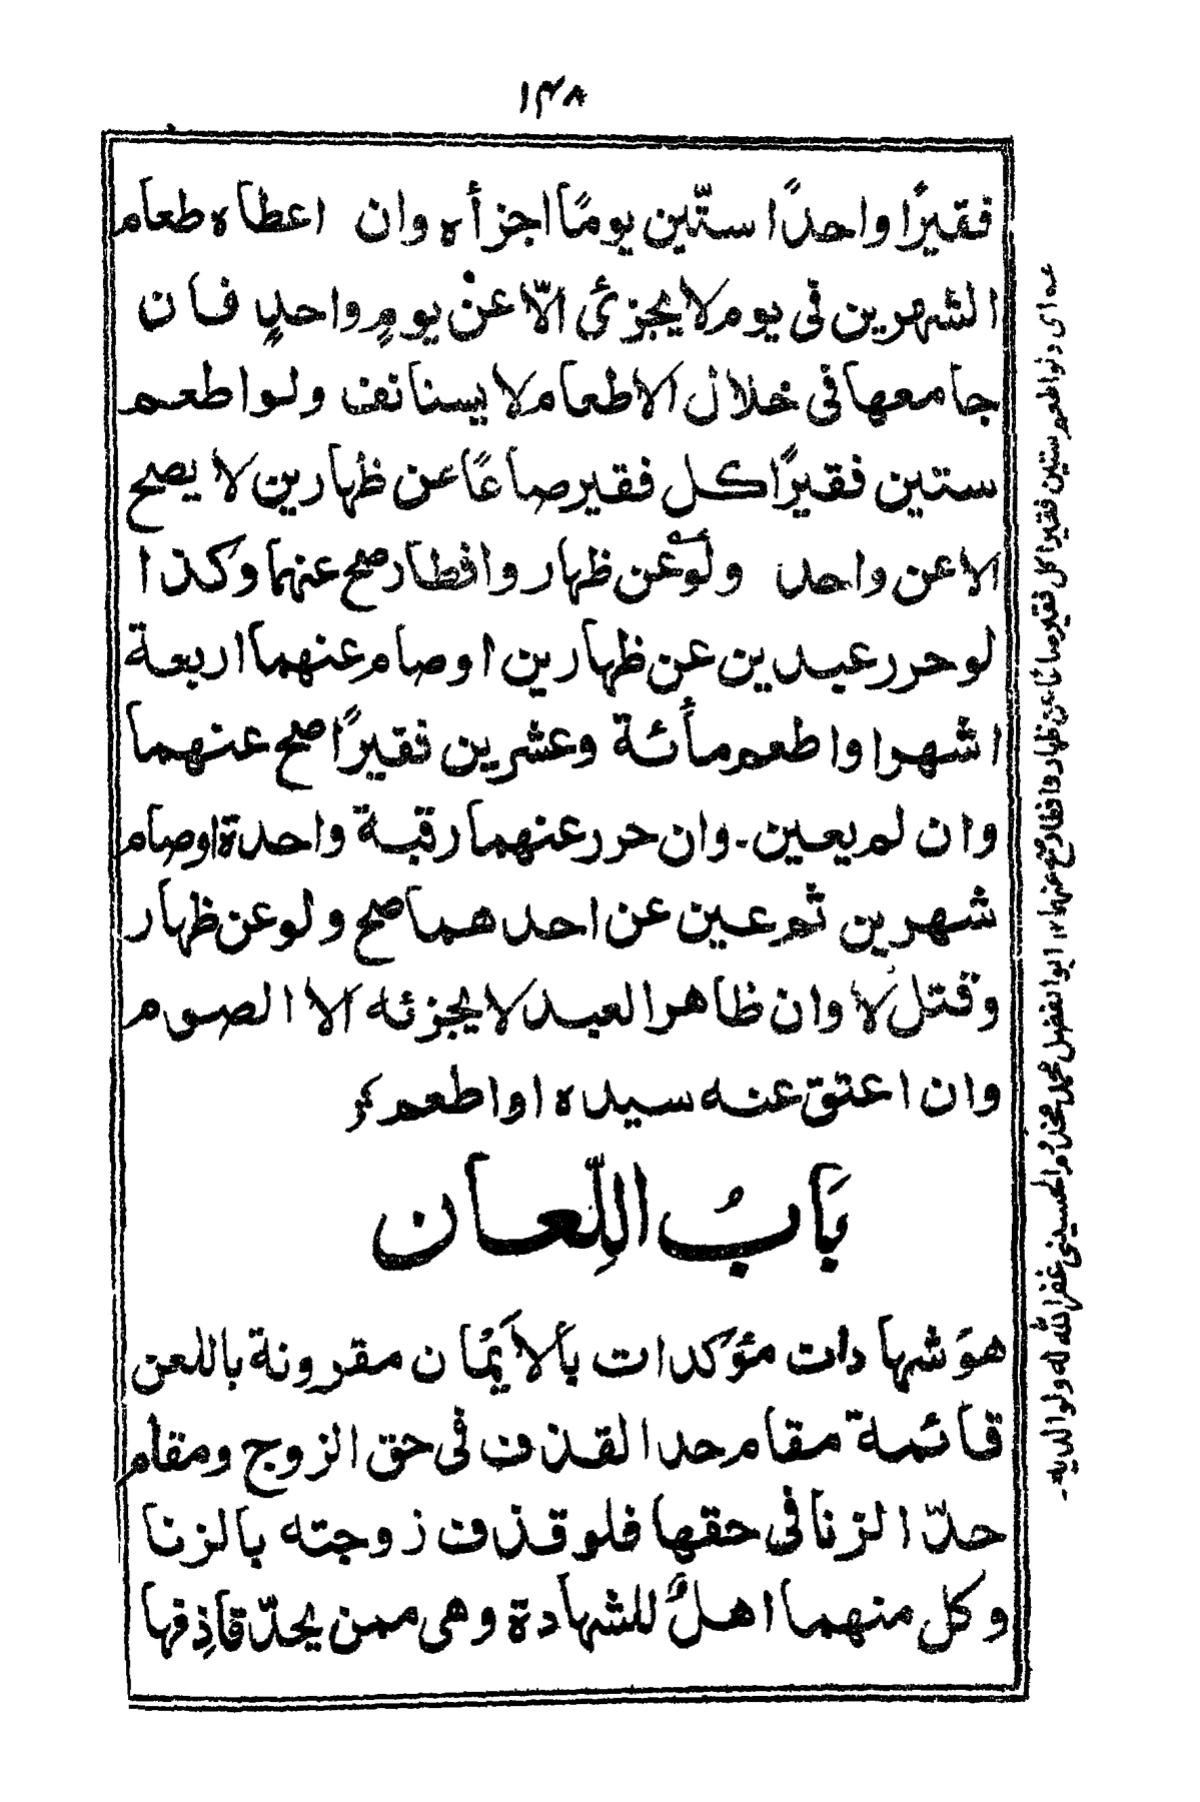 ۱۴۸
فقيرًا واحدًا ستّين يومًا اجزأه وان اعطاه طعام
الشهرين فى يوم لا يجزئ الّا عنْ يومٍ واحدٍ فان
جامعها فى خلال الاطعام لا يستانف ولو اطعم
ستين فقيرًا كل فقير صاعًا عن ظهارين لا يصح
الا عن واحد ولو عن ظهار وافطار صح عنهما وكذا
لو حرر عبدين عن ظهارين او صام عنهما اربعة
اشهر او اطعم مأئة وعشرين فقيرًا صح عنهما
وان لم يعين۔ وان حرر عنهما رقبة واحدة او صام
شهرين ثم عين عن احدهما صح ولو عن ظهار
وقتل لا وان ظاهر العبد لا يجزئه الا الصوم
وان اعتق عنه سيده او اطعم
بَابُ اللِّعان
هوَ شهادات مؤكدات بالأيمان مقرونة باللعن
قائمة مقام حد القذف فى حق الزوج ومقام
حدّ الزنا فى حقها فلو قذف زوجته بالزنا
وكل منهما اهلٌ للشهادة وهى ممن يحدّ قاذِفها
عـه اى ولو اطعم ستين فقيرا كل فقير صاعًا عن ظهار وافطار صح عنهما ۱۲ ابوالفضل محمد الحسينى غفر الله له ولوالديه۔